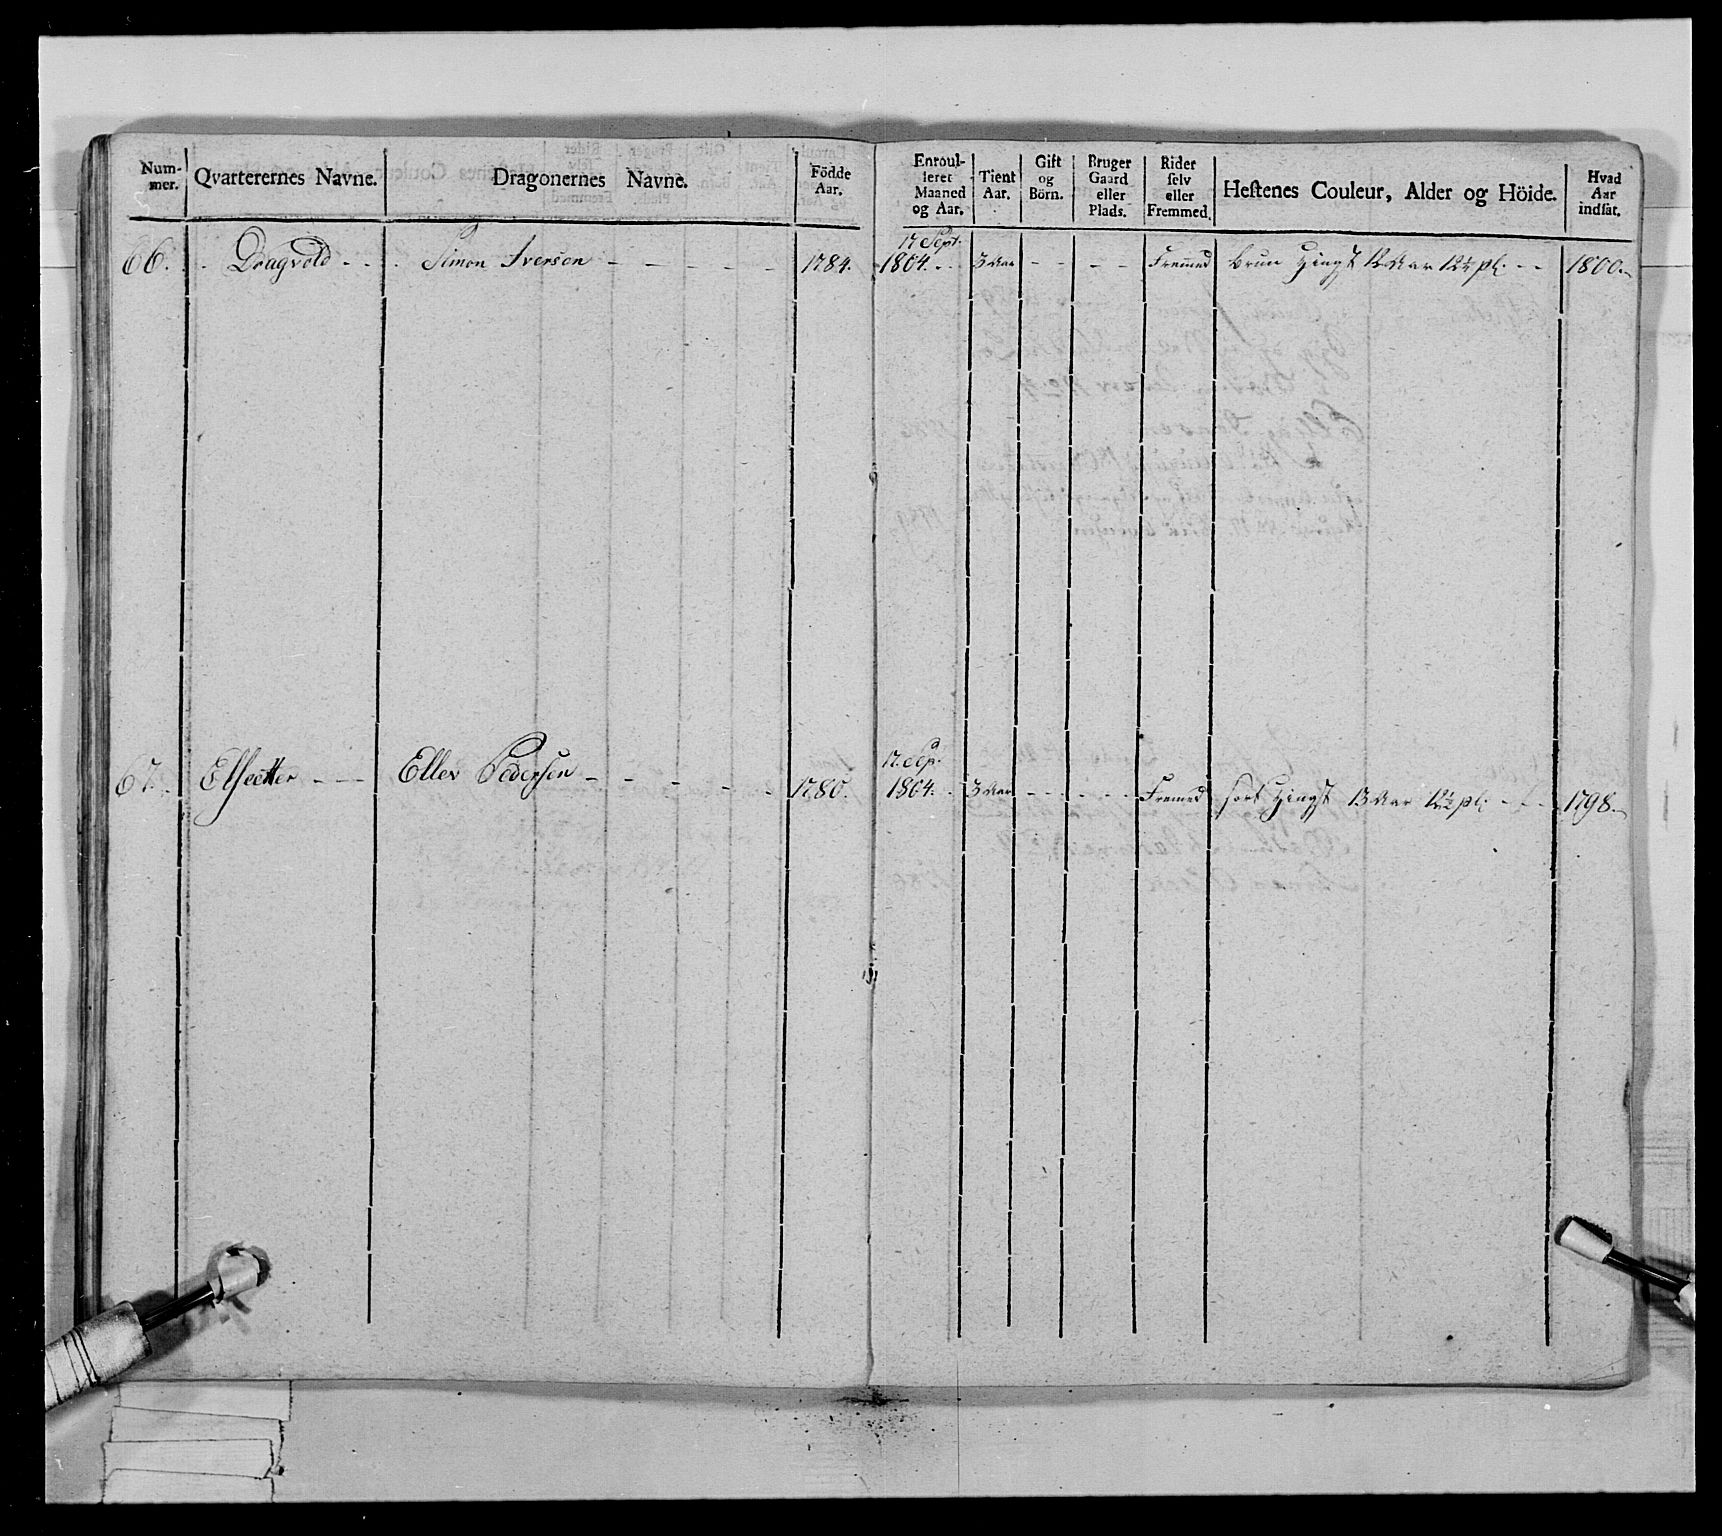 Num-
mer.
Qvarterernes Navne.
Dragonernes Navne.
Födde
Aar.
Enroul-
leret
Maaned
og Aar.
Tient
Aar.
Gift
og
Börn.
Bruger
Gaard
eller
Plads.
Rider
selv
eller
Fremmed.
Hestenes Couleur, Alder og Höide.
Hvad
Aar
indsat.
17 Sept.
66. Dragvold - - Simon Iversen - - - - - 1784. 1804. - - 3 Aar - - - - Fremmed brun Hingst 12 Aar 12½ pl. - - 1800.
17. Sep.
67. Elsetter - - - Ellev Pedersen - - - - - 1780. 1804. - 3 Aar - - - - - Fremed sort Hingst 13 Aar 12½ pl: - - - 1798.